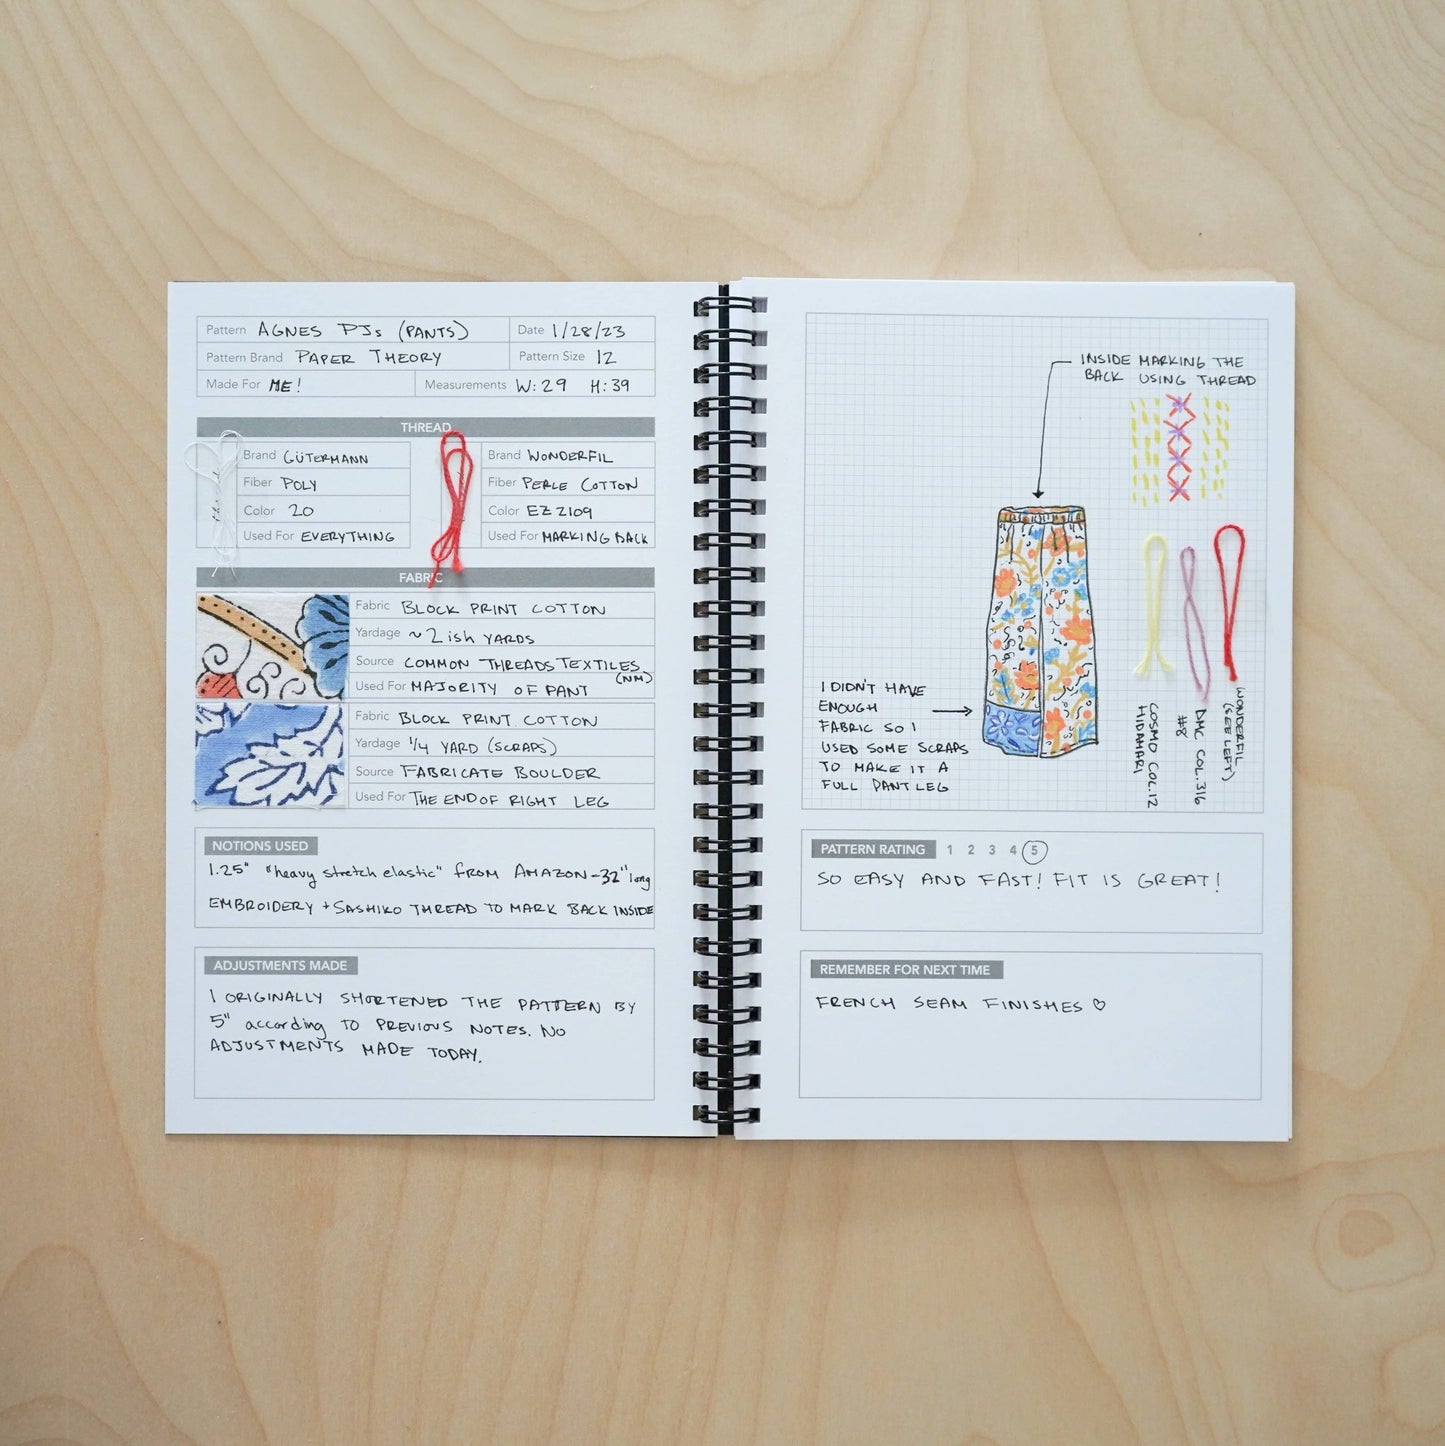 Pattern AGNES PJs (PANTS) Date 1/28/23
Pattern Brand PAPER THEORY Pattern Size 12
Made For ME! Measurements W: 29 H: 39
THREAD
Brand GÜTERMANN
Fiber POLY
Color 20
Used For EVERYTHING
Brand WONDERFIL
Fiber PERLE COTTON
Color EZ 2109
Used For MARKING BACK
FABRIC
Fabric BLOCK PRINT COTTON
Yardage ~ 2 ish YARDS
Source COMMON THREADS TEXTILES
(NM)
Used For MAJORITY OF PANT
Fabric BLOCK PRINT COTTON
Yardage 1/4 YARD (SCRAPS)
Source FABRICATE BOULDER
Used For THE END OF RIGHT LEG
NOTIONS USED
1.25" "heavy stretch elastic" FROM AMAZON - 32" long
EMBROIDERY + SASHIKO THREAD TO MARK BACK INSIDE
ADJUSTMENTS MADE
I ORIGINALLY SHORTENED THE PATTERN BY
5" according TO PREVIOUS NOTES. NO
ADJUSTMENTS MADE TODAY.
INSIDE MARKING THE
BACK USING THREAD
I DIDN'T HAVE
ENOUGH
FABRIC SO I
USED SOME SCRAPS
TO MAKE IT A
FULL PANT LEG
WONDERFIL
(SEE LEFT)
DMC COL. 316
#8
COSMO COL. 12
HIDAMARI
PATTERN RATING 1 2 3 4 5
SO EASY AND FAST! FIT IS GREAT!
REMEMBER FOR NEXT TIME
FRENCH SEAM FINISHES ♡